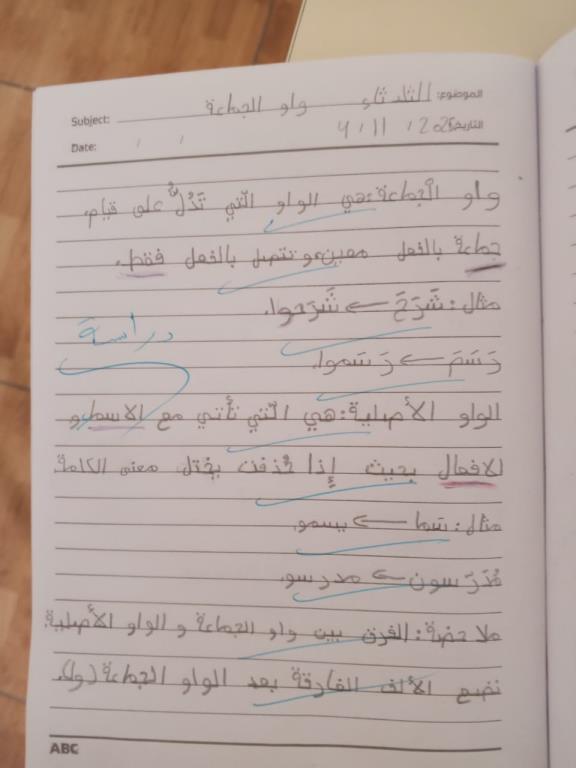 الموضوع: الثلاثاء واو الجماعة
Subject:
التاريخ: 4 / 11 / 2025
Date: / /
واو الجماعة: هي الواو الّتي تَدُلُّ على قيام
جماعة بالفعل معين و تتصل بالفعل فقط.
مثال: شَرَحَ ← شَرَحوا.
دراسة
رَسَمَ ← رَسَموا.
الواو الأصلية: هي الّتي تأتي مع الاسم او
الافعال بحيث إذا حُذفت يختل معنى الكلمة
مثال: سَما ← يسمو.
مُدَرّسون ← مدرسو.
ملاحضة: الفرق بين واو الجماعة و الواو الأصلية.
نضع الألف الفارقة بعد الواو الجماعة (وا).
ABC